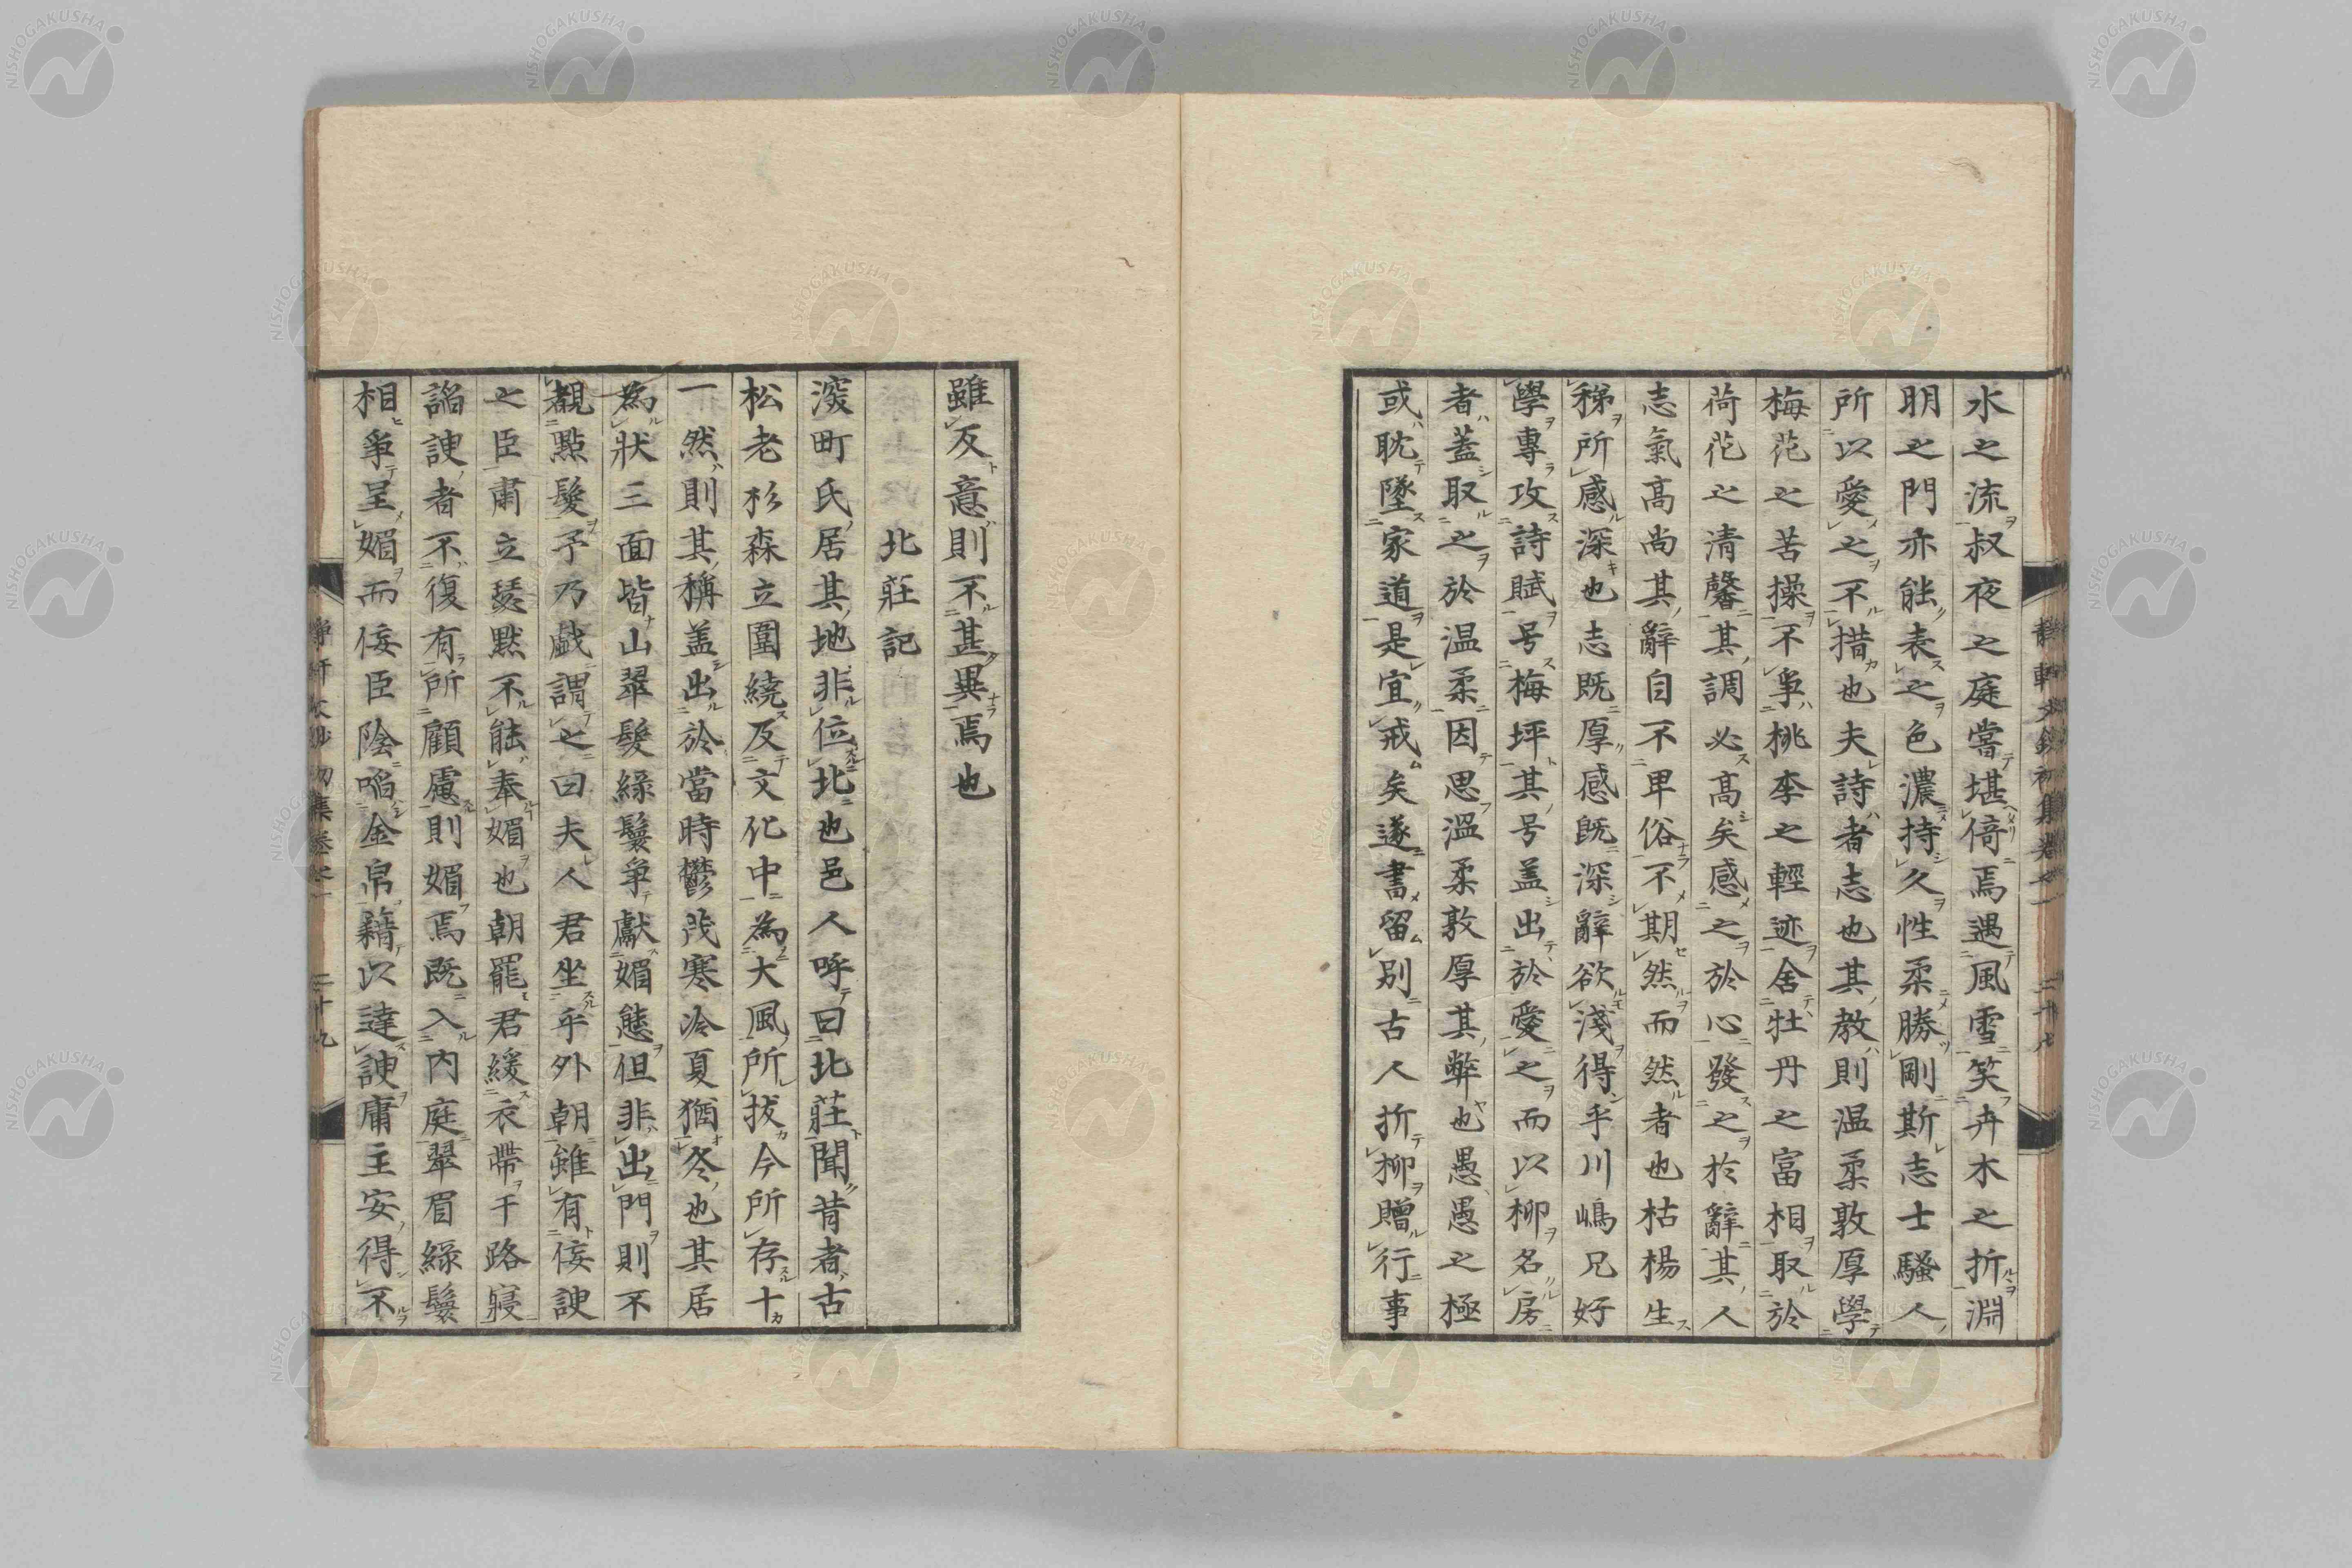 水之流叔夜之庭當堪倚焉遇風雪笑卉木之折淵
明之門亦能表之色濃持久性柔勝剛斯志士騷人
所以愛之不措也夫詩者志也其教則温柔敦厚學
梅花之苦操不爭桃李之輕迹舍牡丹之富相取於
荷花之清馨其調必高矣感之於心發之於辭其人
志氣高尚其辭自不卑俗不期然而然者也枯楊生
稊所感深也志既厚感既深辭欲淺得乎川嶋兄好
學專攻詩賦号梅坪其号盖出於愛之而以柳名房
者蓋取之於温柔因思溫柔敦厚其弊也愚愚之極
或耽墜家道是宜戒矣遂書留別古人折柳贈行事
雖反意則不甚異焉也
北莊記
滚町氏居其地非位北也邑人呼曰北莊聞昔者古
松老杉森立圍繞及文化中為大風所拔今所存十
一然則其稱盖出於當時鬱茂寒冷夏猶冬也其居
為狀三面皆山翠鬟綠鬢爭獻媚態但非出門則不
覩點髮予乃戯謂之曰夫人君坐乎外朝雖有佞諛
之臣肅立瑟黙不能奉媚也朝罷君緩衣帶于路寢
諂諛者不復有所顧慮則媚焉既入内庭翠眉綠鬟
相爭呈媚而佞臣陰啗金帛藉以達諛庸主安得不
NISHOGAKUSHA